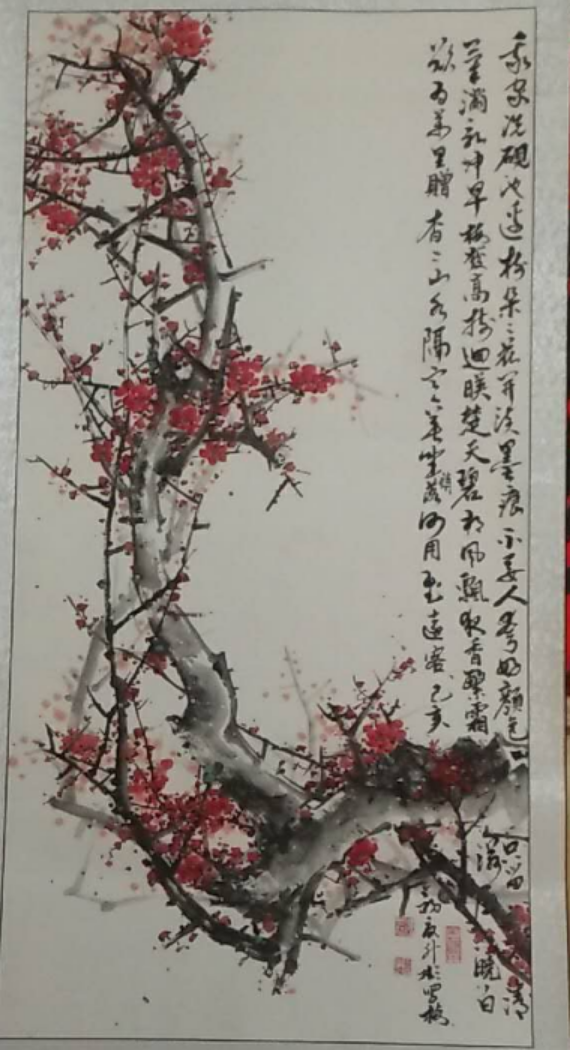 我家洗砚池边树朵朵花开淡墨痕不要人夸好颜色只留清
气满乾坤早梅发高树迥映楚天碧朔风飘夜香繁霜滋晓白
欲为万里赠杳杳山水隔寒英坐销落何用慰远客己亥